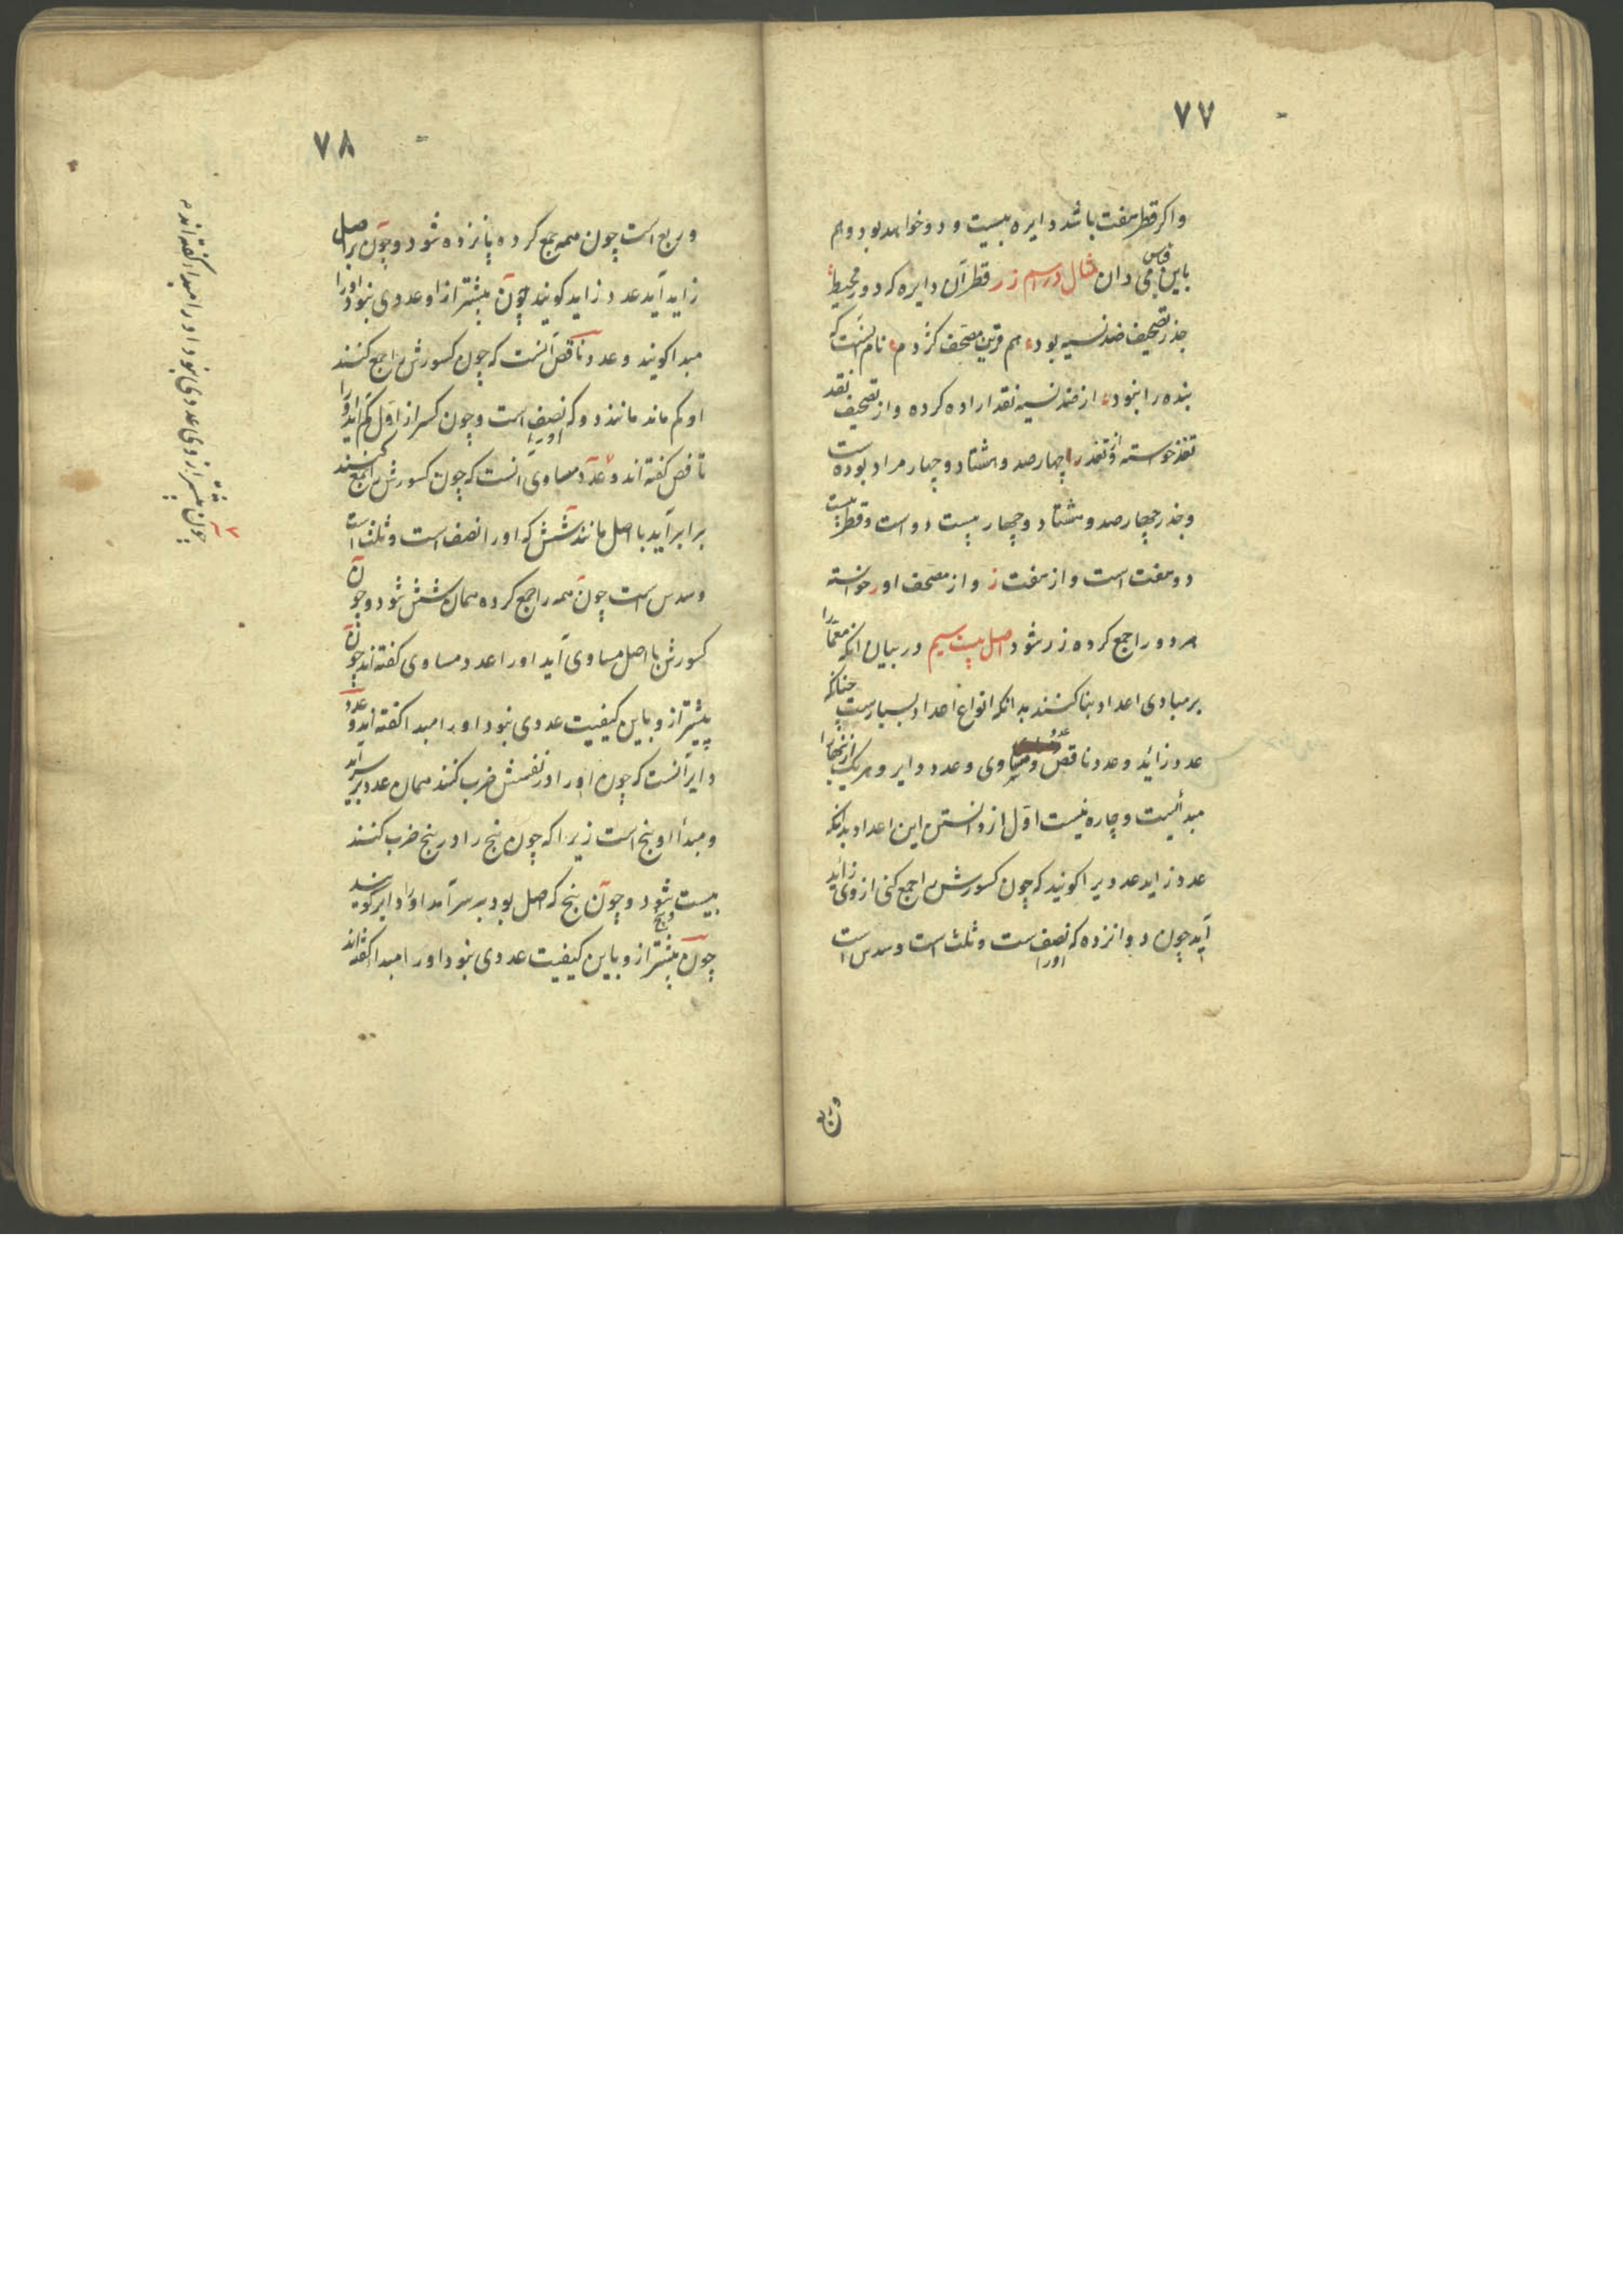 ۷۷
واکر قطر هفت باشد دایره بیست و دو خواهد بود و هم
باین قیاس می دان مثال در اسم زر قطر آن دایره که دور محیط
جذر تصحیف ضد نسیه بود هم قرین مصحف کژدم نام بتیست که
بنده را بنود از ضد نسیه نقد اراده کرده و از تصحیف نقد
تفذ خواسته و از تفذ را چهارصد و هشتاد و چهار مراد بوده است
و جذر چهارصد و هشتاد و چهار بیست دو است و قطر بیست
دو هفت است و از هفت ز و از مصحف او ر خواسته
هر دو را جمع کرده زر شود اصل بیست سیم در بیان انکه معما را
بر مبادی اعداد بنا کنند بدانکه انواع اعداد بسیارست چنانکه
عدد زائد و عدد ناقص و عدد مساوی و عدد دایر و هر یک ازینها را
مبدأیست و چاره نیست اول از دانستن این اعداد بدانکه
عدد زاید عددیرا کویند که چون کسورش را جمع کنی از وی زاید
آید چون دوانزده که اورا نصف است و ثلث است و سدس است
وربع
۷۸
و ربع است چون همه جمع کرده پانزده شود و چون بر اصل
زاید آید عدد زاید کویند چون پیشتر از او عددی نبود اورا
مبدا کویند و عدد ناقص آنست که چون کسورش را جمع کنند
او کم ماند مانند دو که اورا نصف است و چون کسر از اول کم آید اورا
ناقص کفته اند و عدد مساوی آنست که چون کسورش را جمع کنند
برابر آید با اصل مانند شش که اورا نصف است و ثلث است
و سدس است چون همه را جمع کرده همان شش شود و چون
کسورش با اصل مساوی آید اورا عدد مساوی کفته اند چون
پیشتر از و باین کیفیت عددی نبود اورا مبدا کفته اند و عدد
دایر آنست که چون اورا در نفسش ضرب کنند همان عدد بر سر آید
و مبدأ او پنج است زیرا که چون پنج را در پنج ضرب کنند
بیست و پنج شود و چون پنج که اصل بود بر سر آمد اورا دایر کویند
چون پیشتر از و باین کیفیت عددی نبود اورا مبدا کفته اند
چون پیشتر از وی عددی نبود اورا مبدا کفته اند